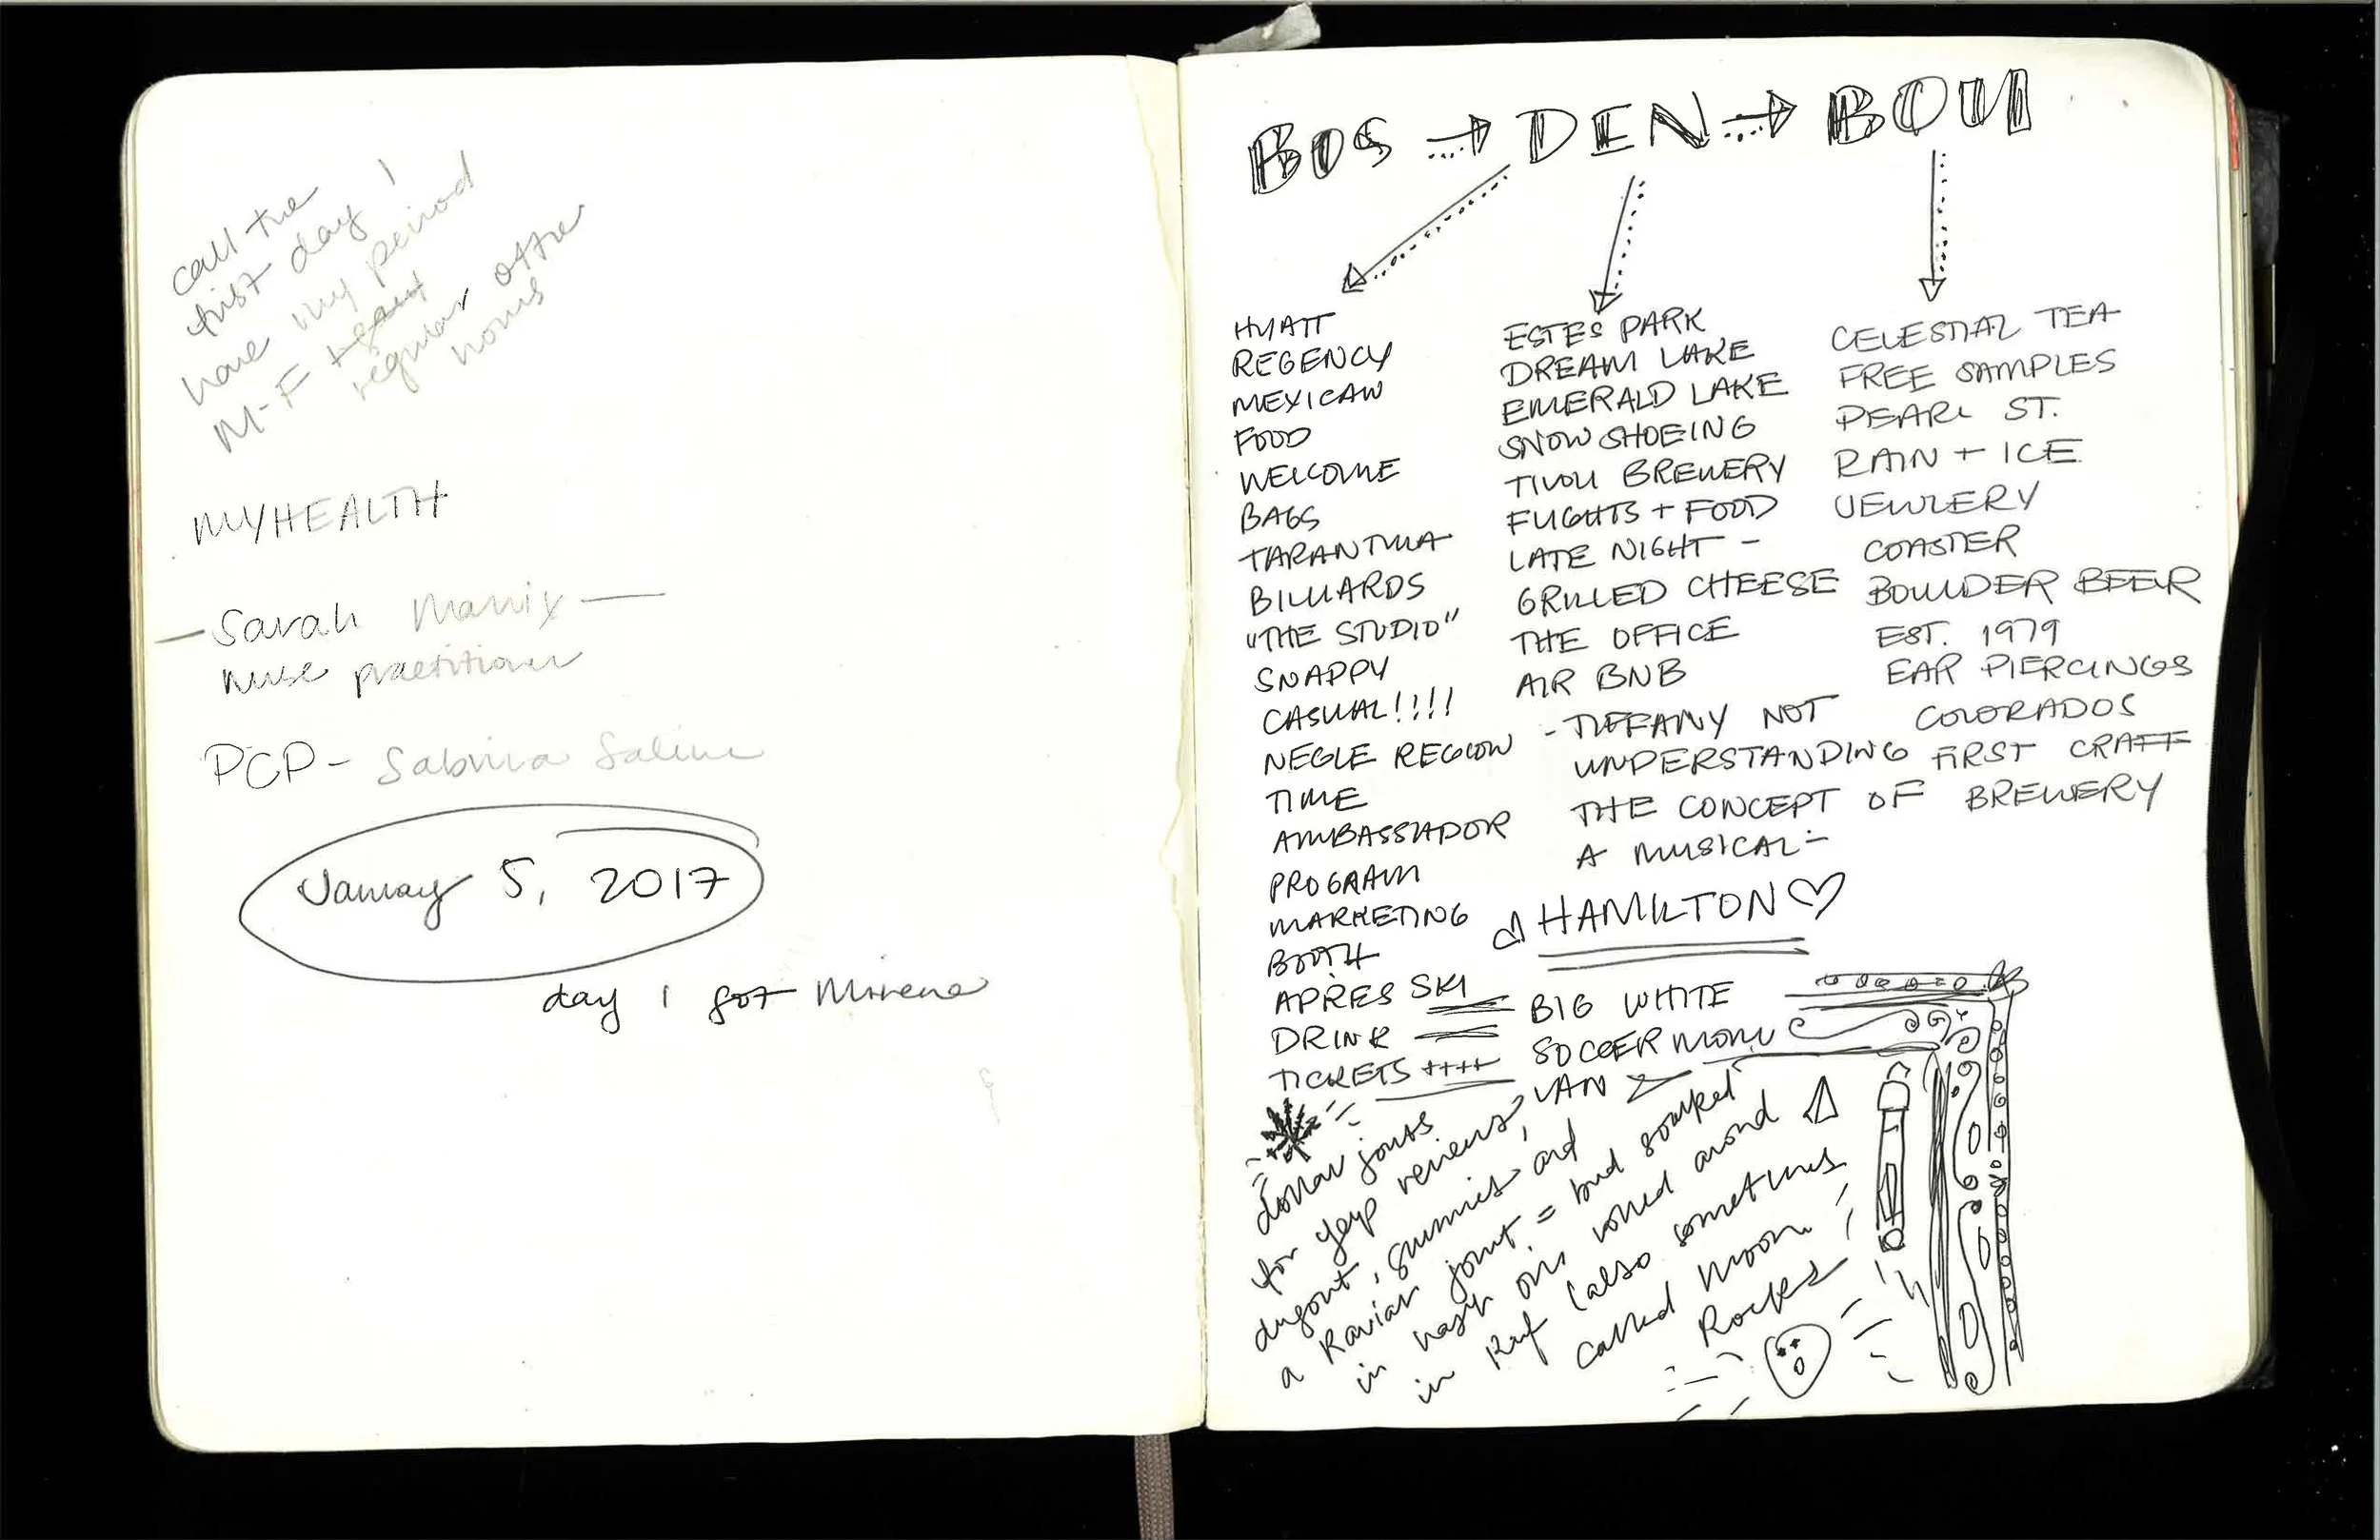 call the
first day I
have my period
M-F
regular office
hours
MYHEALTH
-Sarah Mannix-
nurse practitioner
PCP- Sabrina Salim
January 5, 2017
day I got Mirena
BOS → DEN → BOU
HYATT
REGENCY
MEXICAN
FOOD
WELCOME
BAGS
TARANTULA
BILLIARDS
"THE STUDIO"
SNAPPY
CASUAL!!!!
NEGLE REGION
TIME
AMBASSADOR
PROGRAM
MARKETING
BOOTH
APRÈS SKI
DRINK
TICKETS ++++
ESTES PARK
DREAM LAKE
EMERALD LAKE
SNOW SHOEING
TIVOLI BREWERY
FLIGHTS + FOOD
LATE NIGHT -
GRILLED CHEESE
THE OFFICE
AIR BNB
- TIFFANY NOT
UNDERSTANDING
THE CONCEPT OF
A MUSICAL -
♡ HAMILTON ♡
BIG WHITE
SOCCER MOM
VAN
CELESTIAL TEA
FREE SAMPLES
PEARL ST.
RAIN + ICE
JEWLERY
COASTER
BOULDER BEER
EST. 1979
EAR PIERCINGS
COLORADOS
FIRST CRAFT
BREWERY
dollar joints
for yelp reviews,
dugout, gummies and
a Ravian joint = bud soaked
in hash oil, rolled around
in Kief (also sometimes
called moon
Rocks